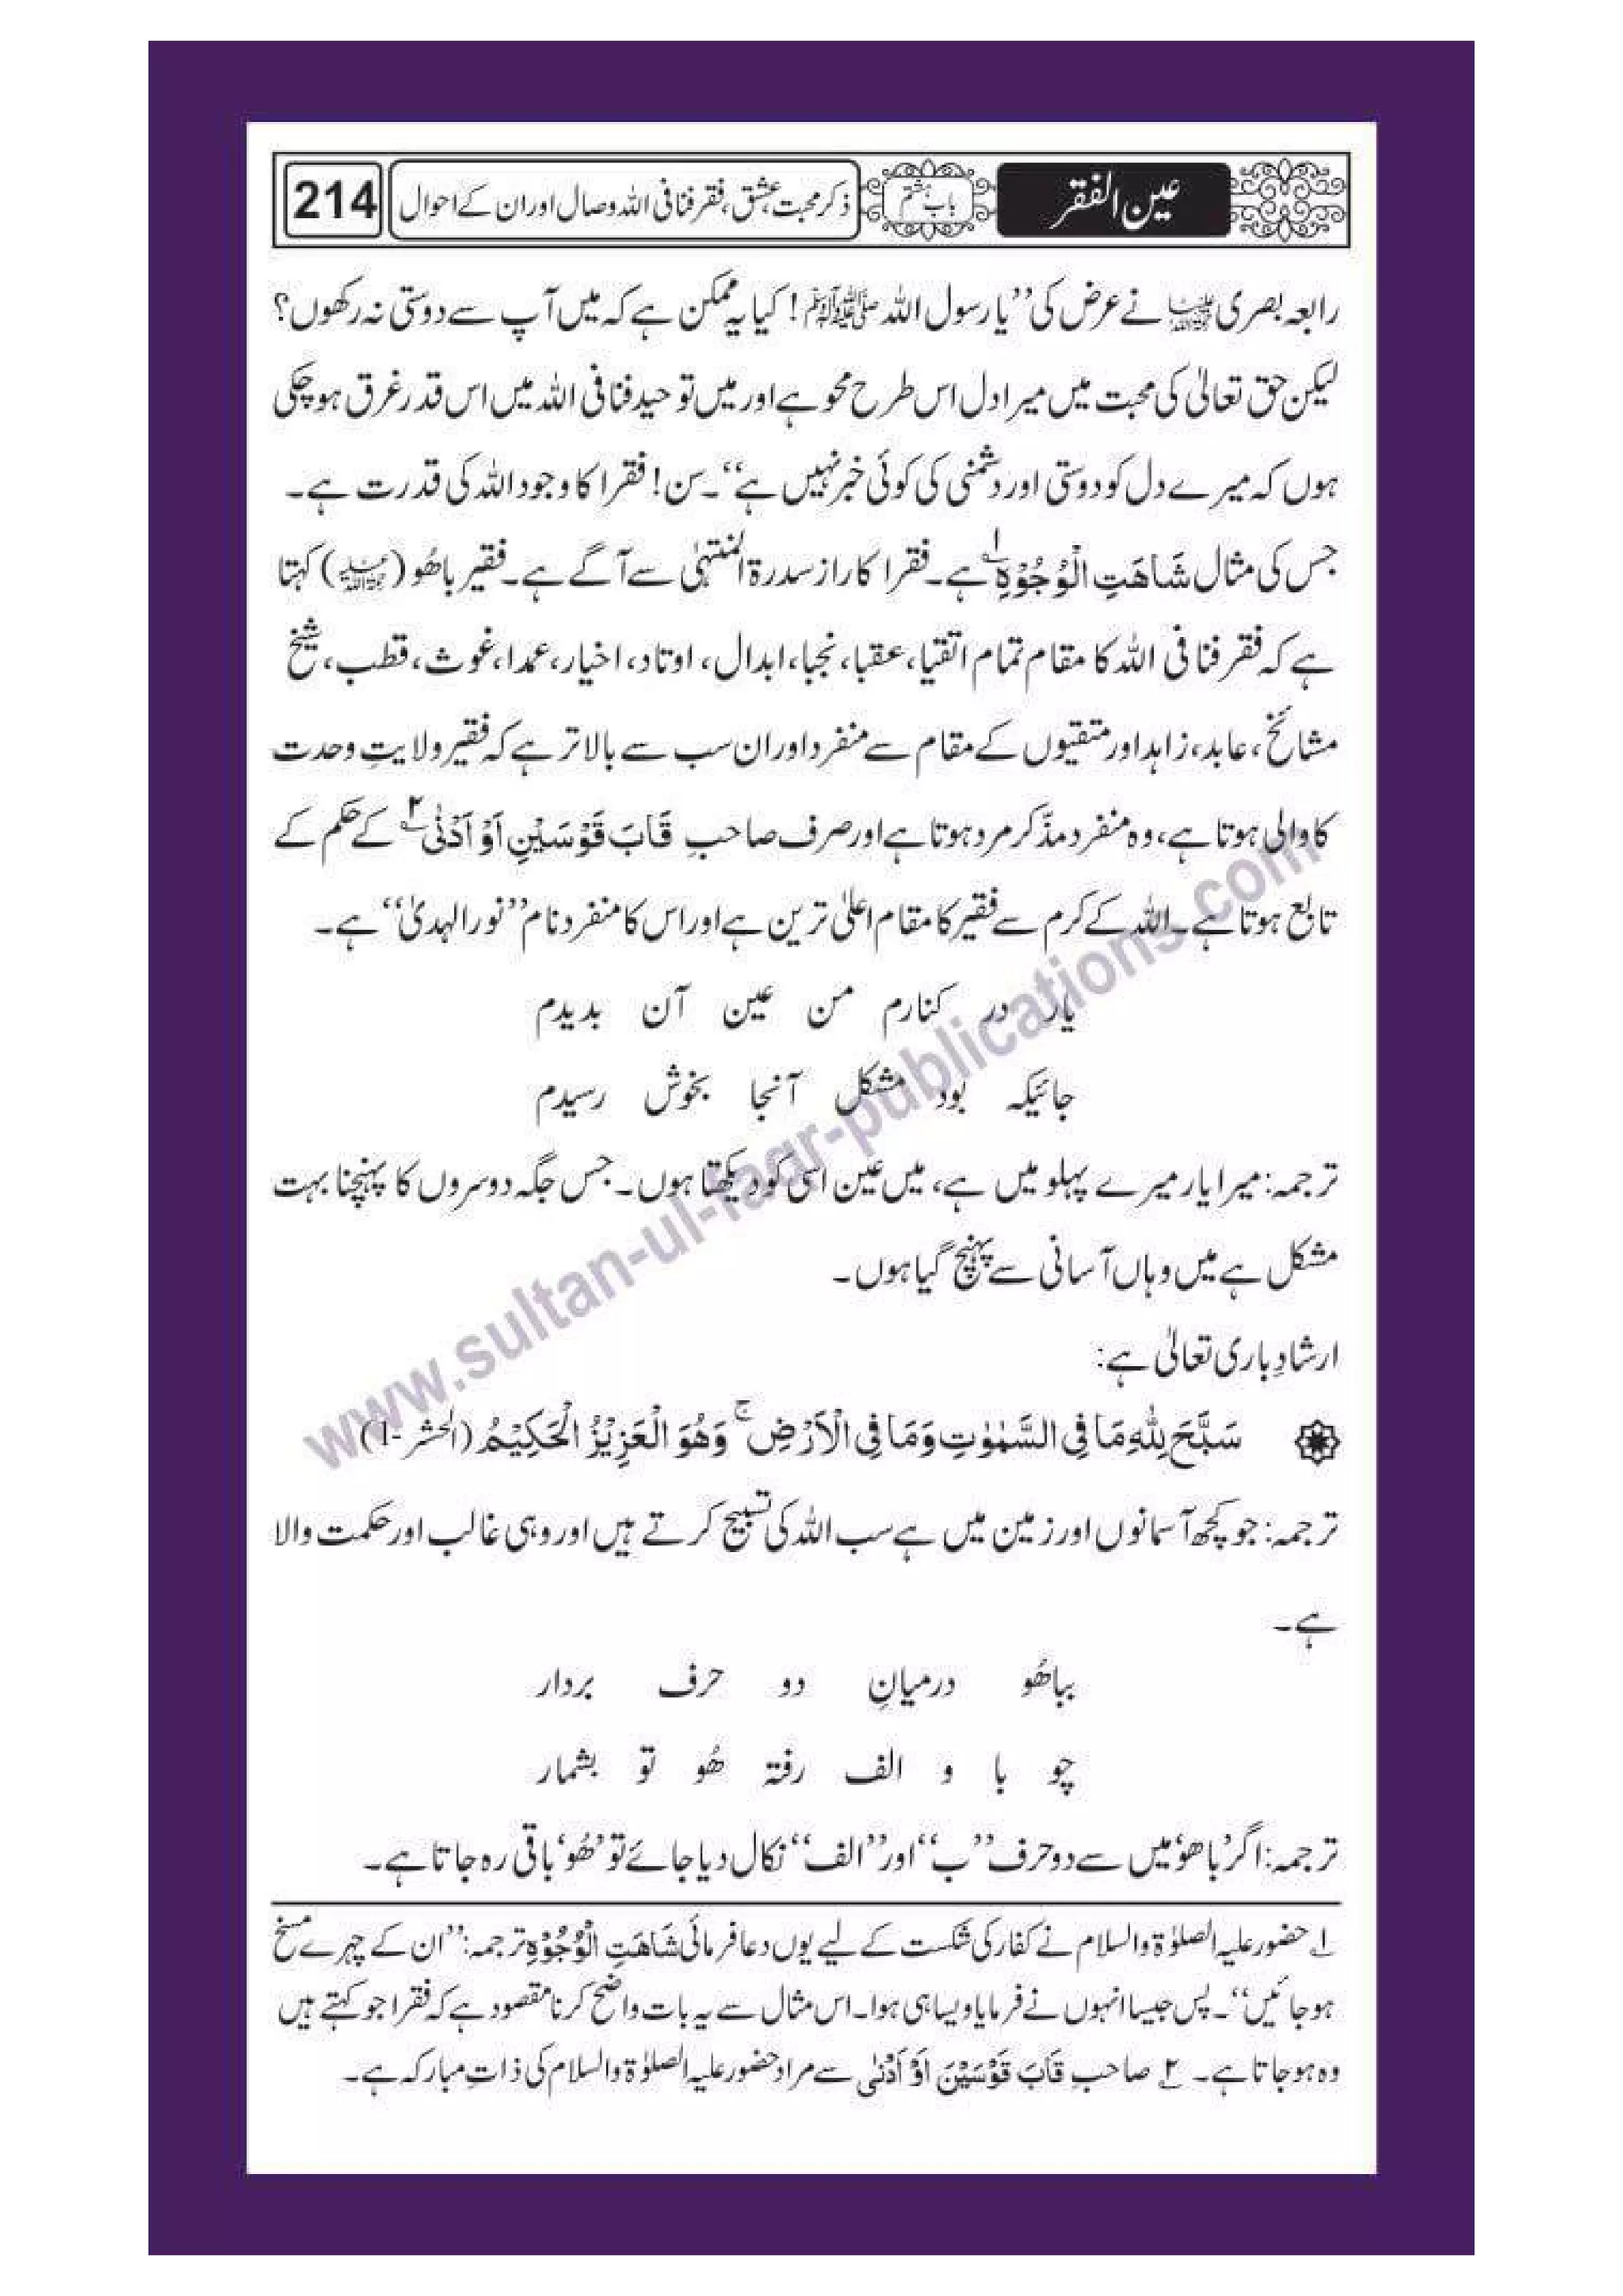 عین الفقر باب ہشتم ذکر محبت، عشق، فقر فنا فی اللہ وصال اور ان کے احوال 214
رابعہ بصری رحمۃ اللہ علیہا نے عرض کی ’’یارسول اللہ صلی اللہ علیہ وآلہ وسلم! کیا یہ ممکن ہے کہ میں آپ سے دوستی نہ رکھوں؟
لیکن حق تعالیٰ کی محبت میں میرا دل اس طرح محو ہے اور میں توحید فنا فی اللہ میں اس قدر غرق ہو چکی
ہوں کہ میرے دل کو دوستی اور دشمنی کی کوئی خبر نہیں ہے‘‘۔ سن! فقرا کا وجود اللہ کی قدرت ہے۔
جس کی مثال شَاھَتِ الْوُجُوْہِ ۱؎ ہے۔ فقرا کا راز سدرۃ المنتہٰی سے آگے ہے۔ فقیر باھُو (رحمۃ اللہ علیہ) کہتا
ہے کہ فقر فنا فی اللہ کا مقام تمام اتقیا، عقبا، نجبا، ابدال، اوتاد، اخیار، عمدا، غوث، قطب، شیخ
مشائخ، عابد، زاہد اور متقیوں کے مقام سے منفرد اور ان سب سے بالاتر ہے کہ فقیر ولایتِ وحدت
کا والی ہوتا ہے، وہ منفرد مذکر مرد ہوتا ہے اور صرف صاحبِ قَابَ قَوْسَیْنِ اَوْ اَدْنٰی ۲؎ کے حکم کے
تابع ہوتا ہے۔ اللہ کے کرم سے فقیر کا مقام اعلیٰ ترین ہے اور اس کا منفرد نام ’’نور الہدیٰ‘‘ ہے۔
یار در کنارم من عین آن بدیدم
جائیکہ بود مشکل آنجا بخوش رسیدم
ترجمہ: میرا یار میرے پہلو میں ہے، میں عین اسی کو دیکھتا ہوں۔ جس جگہ دوسروں کا پہنچنا بہت
مشکل ہے میں وہاں آسانی سے پہنچ گیا ہوں۔
ارشادِ باری تعالیٰ ہے:
سَبَّحَ لِلّٰہِ مَا فِی السَّمٰوٰتِ وَمَا فِی الْاَرْضِ ۚ وَھُوَ الْعَزِیْزُ الْحَکِیْمُ (الحشر-1)
ترجمہ: جو کچھ آسمانوں اور زمین میں ہے سب اللہ کی تسبیح کرتے ہیں اور وہی غالب اور حکمت والا
ہے۔
بباھُو درمیانِ دو حرف بردار
چو با و الف رفتہ ھُو تو بشمار
ترجمہ: اگر ’باھو‘ میں سے دو حرف ’’ب‘‘ اور ’’الف‘‘ نکال دیا جائے تو ’ھُو‘ باقی رہ جاتا ہے۔
۱؎ حضور علیہ الصلوٰۃ والسلام نے کفار کی شکست کے لیے یوں دعا فرمائی شَاھَتِ الْوُجُوْہِ ترجمہ: ’’ان کے چہرے مسخ
ہو جائیں‘‘۔ پس جیسا انہوں نے فرمایا ویسا ہی ہوا۔ اس مثال سے یہ بات واضح کرنا مقصود ہے کہ فقرا جو کہتے ہیں
وہ ہو جاتا ہے۔ ۲؎ صاحبِ قَابَ قَوْسَیْنَ اَوْ اَدْنٰی سے مراد حضور علیہ الصلوٰۃ والسلام کی ذاتِ مبارکہ ہے۔
www.sultan-ul-faqr-publications.com